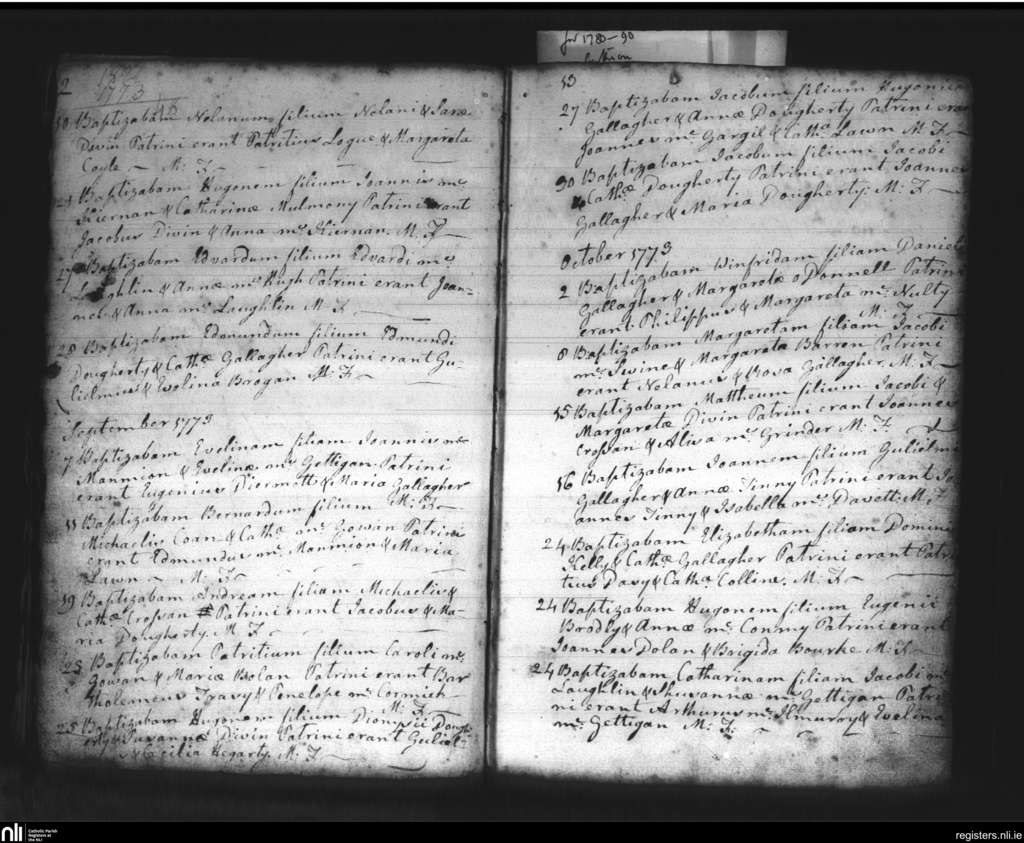 for 1780-90
12
1773
10 Baptizabam Nolanum filium Nolani & Saræ
Divin Patrini erant Patritius Logue & Margareta
Coyle - M: F.
Baptizabam Hugonem filium Joannis mc
Kiernan & Catharinæ Mulmony Patrini erant
Jacobus Divin & Anna mc Kiernan. M. F
17 Baptizabam Edvardum filium Edvardi mc
Laughlin & Annæ mc Hugh Patrini erant Joan=
nes & Anna mc Laughlin M: F.
28 Baptizabam Edmundum filium Edmundi
Dougherty & Cathæ Gallagher Patrini erant Gu-
lielmus & Evolina Brogan M: F.
September 1773
7 Baptizabam Evelinam filiam Joannis mc
Monmion & Evelinæ mc Gettigan Patrini
erant Eugenius Diermott & Maria Gallagher
M: F.
11 Baptizabam Bernardum filium
Michaelis Coan & Catha mc Gowin Patrini
erant Edmundus mc Monmion & Maria
Lawn - M: F.
19 Baptizabam Andream filiam Michaelis &
Cathæ Crossan Patrini erant Jacobus & Ma-
ria Dougherty. M: F.
23 Baptizabam Patritium filium Caroli mc
Gowan & Mariæ Bolan Patrini erant Bar
tholemeus Travy & Penelope mc Cormick
M: F.
25 Baptizabam Hugonem filium Dionysii Dough
erty & Susannæ Divin Patrini erant Guliel-
& Cecilia Hegarty. M: F.
13
27 Baptizabam Jacobum filium Hugonis
Gallagher & Annæ Dougherty Patrini erant
Joannes mc Gargil & Catha Lawn M: F.
30 Baptizabam Jacobum filium Jacobi
& Cathæ Dougherty Patrini erant Joannes
Gallagher & Maria Dougherty. M: F.
October 1773
2 Baptizabam Winfridam filiam Danielis
Gallagher & Margaretæ o Donnell Patrini
erant Philippus & Margareta mc Nulty
M: F.
8 Baptizabam Margaretam filiam Jacobi
mc Swine & Margareta Barren Patrini
erant Nolanus & Rosa Gallagher. M: F.
15 Baptizabam Mattheum filium Jacobi &
Margaretæ Divin Patrini erant Joannes
Crossan & Alisa mc Grinder M: F.
16 Baptizabam Joannem filium Gulielmi
Gallagher & Annæ Tinny Patrini erant Jo
annes Tinny & Isabella mc Davett: M: F
24 Baptizabam Elizabetham filiam Domini
Kelly & Cathæ Gallagher Patrini erant Patri
tius Davy & Catha Collins. M: F.
24 Baptizabam Hugonem filium Eugenii
Brodly & Annæ mc Conmy Patrini erant
Joannes Dolan & Brigida Bourke M: F.
24 Baptizabam Catharinam filiam Jacobi mc
Laughlin & Shusannæ mc Gettigan Patri
ni erant Arthurus mc Ilmurry & Evelina
mc Gettigan M: F.
nli
Catholic Parish
Registers at
the NLI
registers.nli.ie